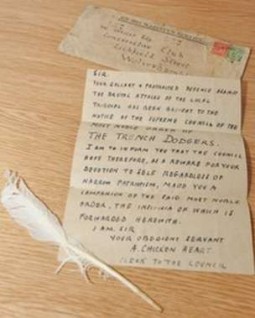 SIR.
YOUR GALLANT & PROTRACTED DEFENCE AGAINST
THE BRUTAL ATTACKS OF THE LOCAL
TRIBUNAL HAS BEEN BROUGHT TO THE
NOTICE OF THE SUPREME COUNCIL OF THE
MOST NOBLE ORDER OF
THE TRENCH DODGERS.
I AM TO INFORM YOU THAT THE COUNCIL
HAVE THEREFORE, AS A REWARD FOR YOUR
DEVOTION TO SELF REGARDLESS OF
NARROW PATRIOTISM, MADE YOU A
COMPANION OF THE SAID MOST NOBLE
ORDER, THE INSIGNIA OF WHICH IS
FORWARDED HEREWITH.
I AM SIR
YOUR OBEDIENT SERVANT
A. CHICKEN HEART
CLERK TO THE COUNCIL